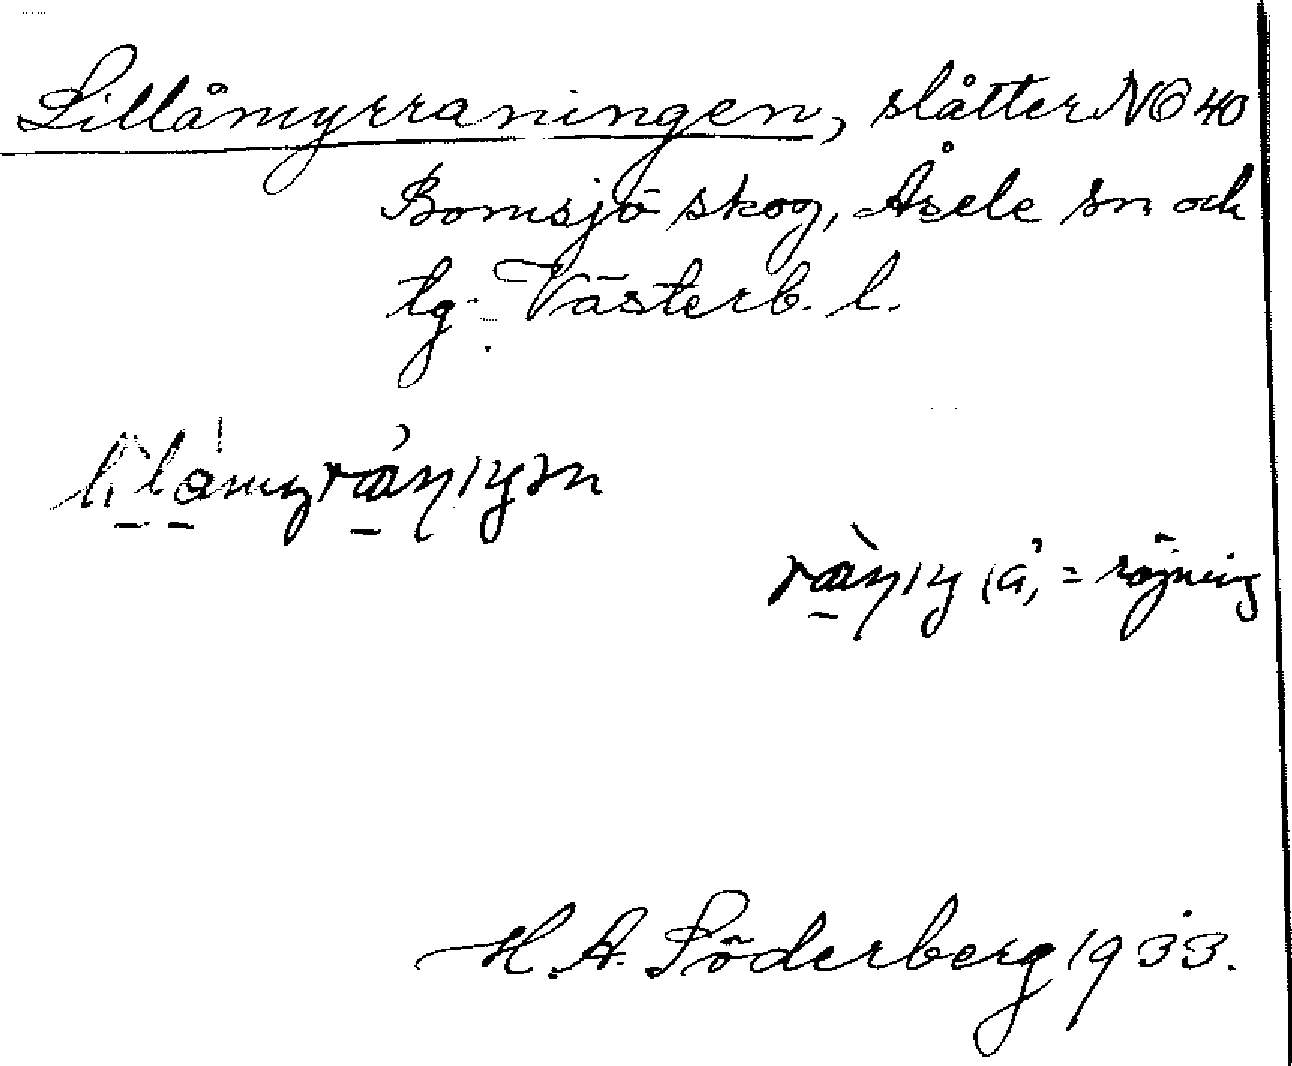 Lillåmyrraningen, slåtter NO 40
Bomsjö skog, Åsele sn och
tg. Västerb. l.
= röjning
H. A. Söderberg 1933.